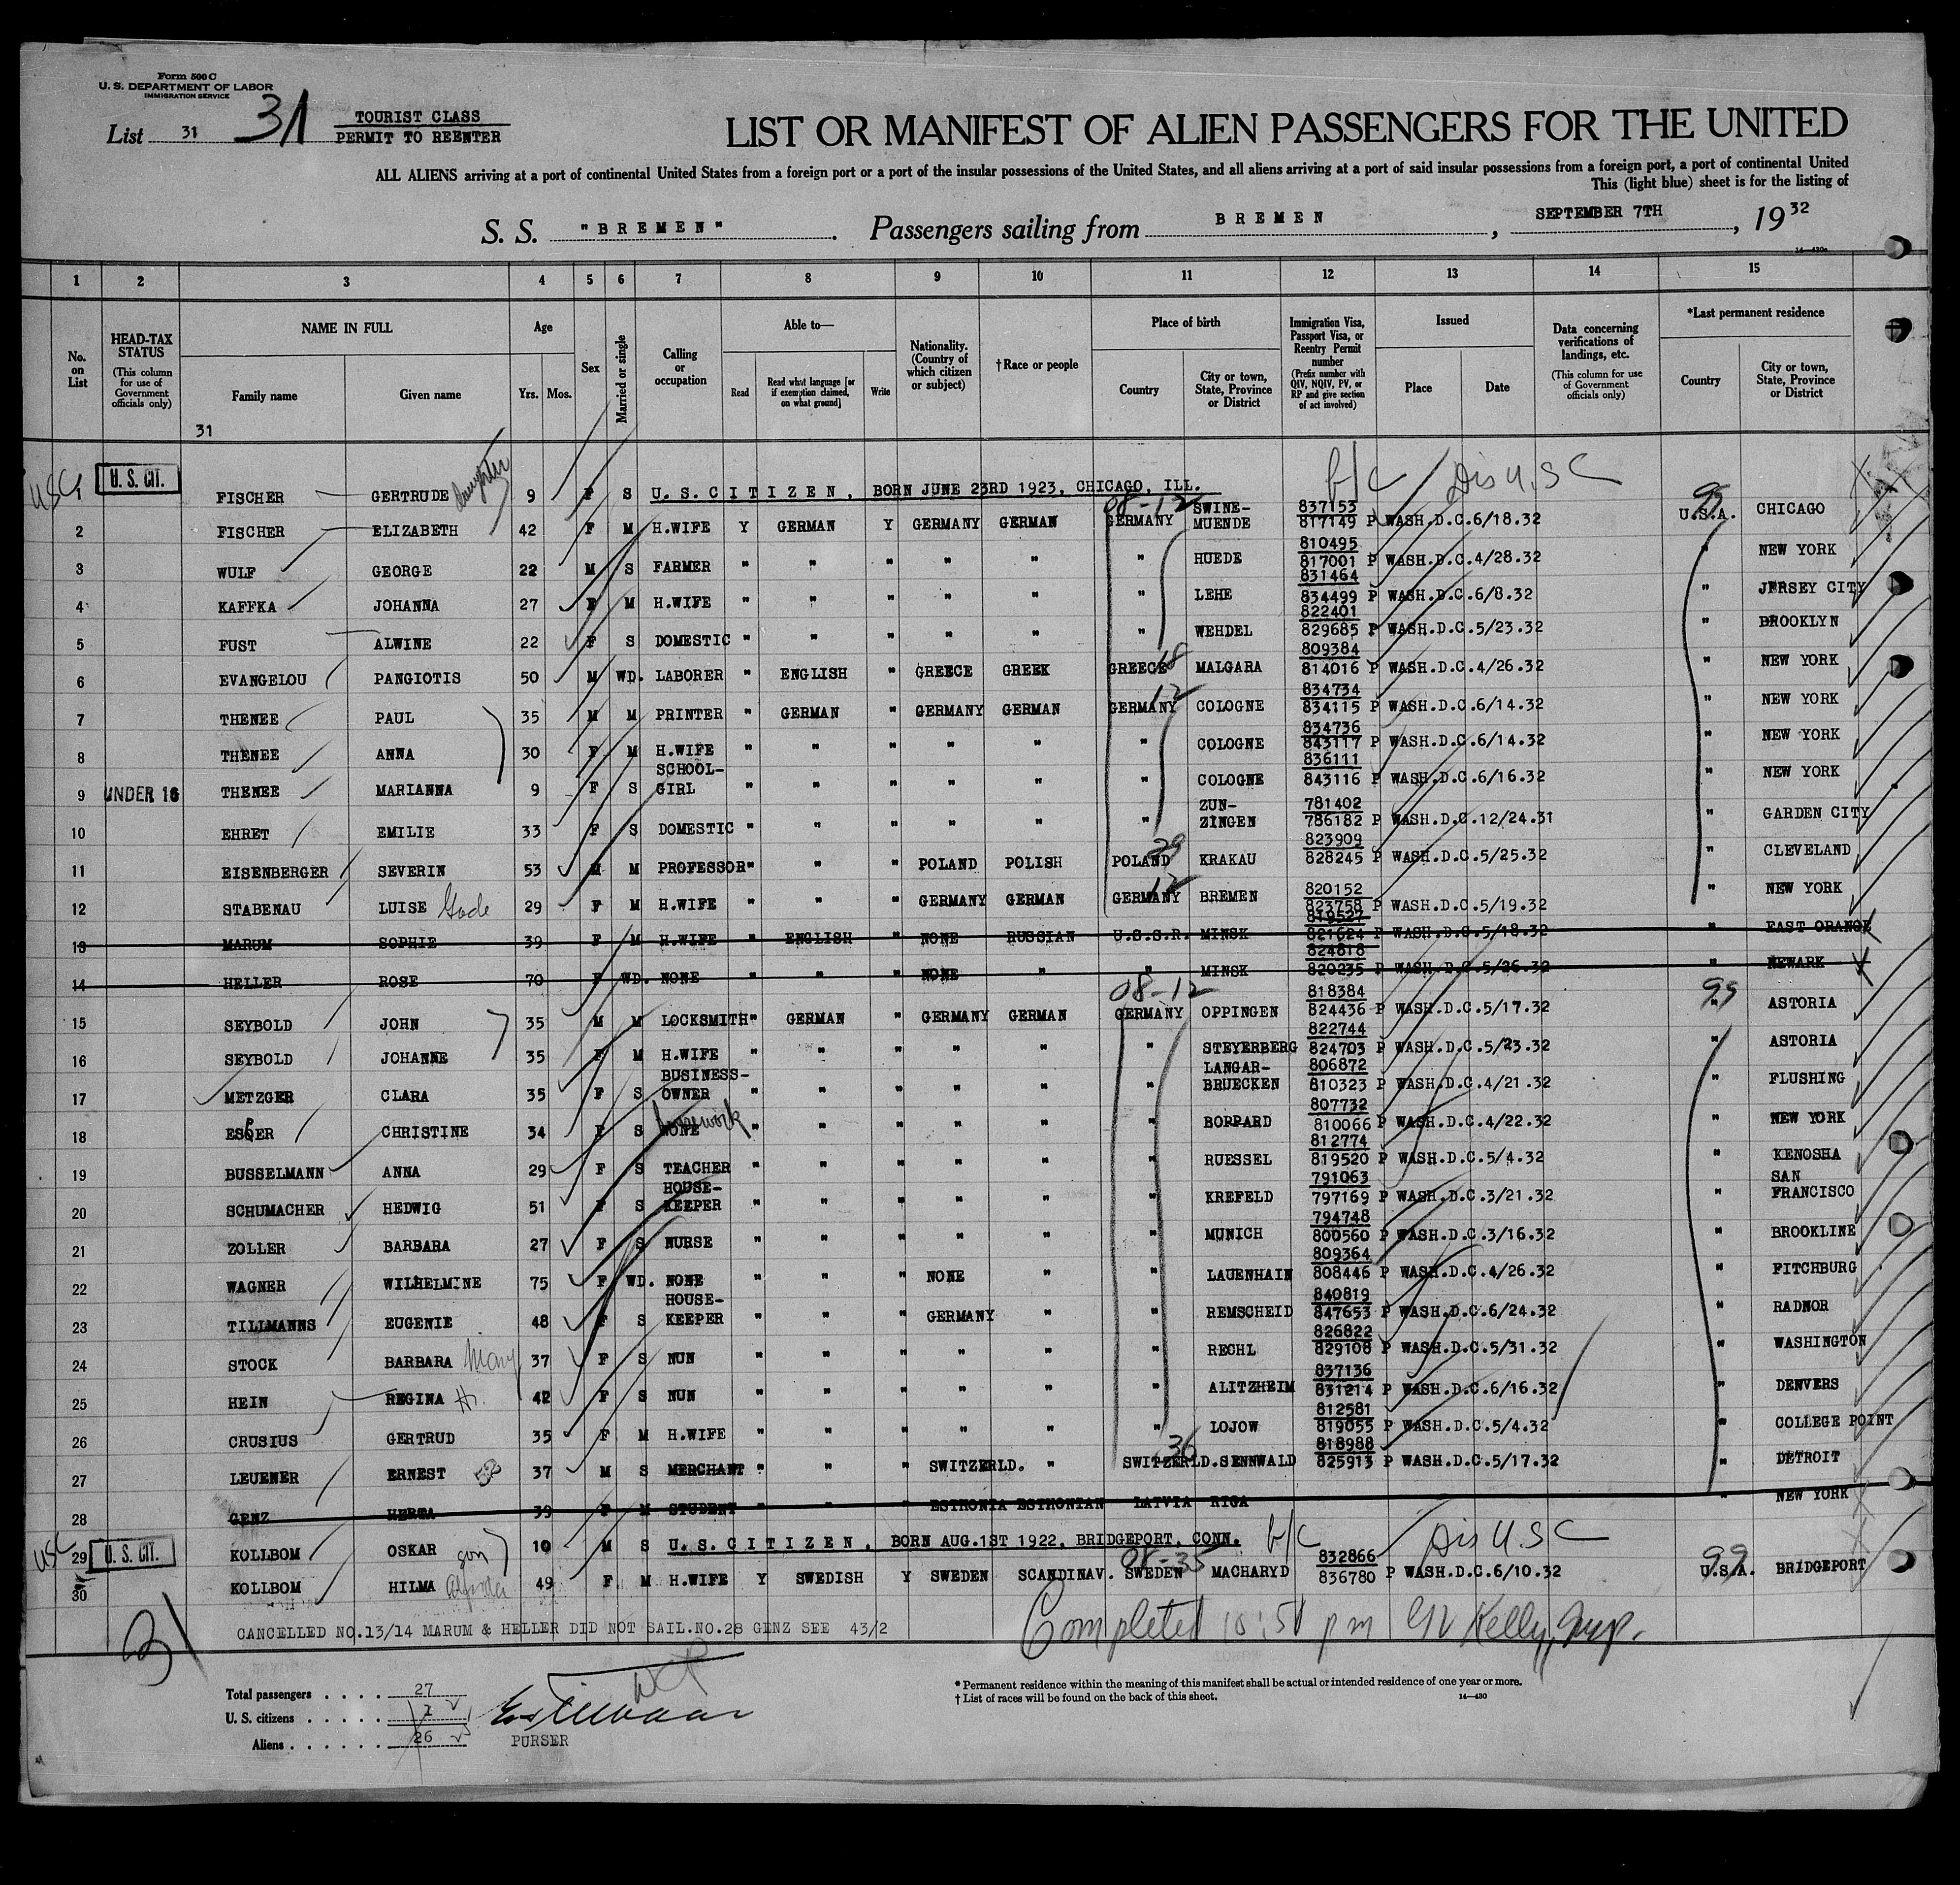 Form 500 C
U. S. DEPARTMENT OF LABOR
IMMIGRATION SERVICE
List 31 31 TOURIST CLASS
PERMIT TO REENTER
LIST OR MANIFEST OF ALIEN PASSENGERS FOR THE UNITED
ALL ALIENS arriving at a port of continental United States from a foreign port or a port of the insular possessions of the United States, and all aliens arriving at a port of said insular possessions from a foreign port, a port of continental United
This (light blue) sheet is for the listing of
S. S. "BREMEN". Passengers sailing from BREMEN, SEPTEMBER 7TH, 1932
14—430a
1 2 3 4 5 6 7 8 9 10 11 12 13 14 15
No. on List
HEAD-TAX STATUS (This column for use of Government officials only)
NAME IN FULL
Family name Given name
Age
Yrs. Mos.
Sex
Married or single
Calling or occupation
Able to—
Read
Read what language [or if exemption claimed, on what ground]
Write
Nationality. (Country of which citizen or subject)
†Race or people
Place of birth
Country
City or town, State, Province or District
Immigration Visa, Passport Visa, or Reentry Permit number (Prefix number with QIV, NQIV, PV, or RP and give section of act involved)
Issued
Place Date
Data concerning verifications of landings, etc. (This column for use of Government officials only)
*Last permanent residence
Country
City or town, State, Province or District
31
USC 1 U. S. CIT. FISCHER GERTRUDE daughter 9 F S U. S. CITIZEN, BORN JUNE 23RD 1923, CHICAGO, ILL. b/c Dis USC
2 FISCHER ELIZABETH 42 F M H.WIFE Y GERMAN Y GERMANY GERMAN 08-12 GERMANY SWINE-MUENDE 837153 817149 P WASH.D.C.6/18.32 99 U.S.A. CHICAGO
3 WULF GEORGE 22 M S FARMER " " " " " " HUEDE 810495 817001 P WASH.D.C.4/28.32 " NEW YORK
4 KAFFKA JOHANNA 27 F M H.WIFE " " " " " " LEHE 831464 834499 P WASH.D.C.6/8.32 " JERSEY CITY
5 FUST ALWINE 22 F S DOMESTIC " " " " " " WEHDEL 822401 829685 P WASH.D.C.5/23.32 " BROOKLYN
6 EVANGELOU PANGIOTIS 50 M WD. LABORER " ENGLISH " GREECE GREEK GREECE 18 MALGARA 809384 814016 P WASH.D.C.4/26.32 " NEW YORK
7 THENEE PAUL 35 M M PRINTER " GERMAN " GERMANY GERMAN GERMANY 12 COLOGNE 834734 834115 P WASH.D.C.6/14.32 " NEW YORK
8 THENEE ANNA 30 F M H.WIFE " " " " " " COLOGNE 834736 843117 P WASH.D.C.6/14.32 " NEW YORK
9 UNDER 16 THENEE MARIANNA 9 F S SCHOOL-GIRL " " " " " " COLOGNE 836111 843116 P WASH.D.C.6/16.32 " NEW YORK
10 EHRET EMILIE 33 F S DOMESTIC " " " " " " ZUN-ZINGEN 781402 786182 P WASH.D.C.12/24.31 " GARDEN CITY
11 EISENBERGER SEVERIN 53 M M PROFESSOR " " " POLAND POLISH POLAND 29 KRAKAU 823909 828245 P WASH.D.C.5/25.32 " CLEVELAND
12 STABENAU LUISE 29 F M H.WIFE " " " GERMANY GERMAN GERMANY 12 BREMEN 820152 823758 P WASH.D.C.5/19.32 " NEW YORK
13 MARUM SOPHIE 39 F M H.WIFE " ENGLISH " NONE RUSSIAN U.S.S.R. MINSK 819527 821624 P WASH.D.C.5/18.32 " EAST ORANGE
14 HELLER ROSE 70 F WD. NONE " " " NONE " " MINSK 824818 820235 P WASH.D.C.5/26.32 " NEWARK
15 SEYBOLD JOHN 35 M M LOCKSMITH " GERMAN " GERMANY GERMAN 08-12 GERMANY OPPINGEN 818384 824436 P WASH.D.C.5/17.32 99 " ASTORIA
16 SEYBOLD JOHANNE 35 F M H.WIFE " " " " " " STEYERBERG 822744 824703 P WASH.D.C.5/23.32 " ASTORIA
17 METZGER CLARA 35 F S BUSINESS-OWNER " " " " " " LANGAR-BRUECKEN 806872 810323 P WASH.D.C.4/21.32 " FLUSHING
18 ESSER CHRISTINE 34 F S NONE housework " " " " " " BOPPARD 807732 810066 P WASH.D.C.4/22.32 " NEW YORK
19 BUSSELMANN ANNA 29 F S TEACHER " " " " " " RUESSEL 812774 819520 P WASH.D.C.5/4.32 " KENOSHA
20 SCHUMACHER HEDWIG 51 F S HOUSE-KEEPER " " " " " " KREFELD 791063 797169 P WASH.D.C.3/21.32 " SAN FRANCISCO
21 ZOLLER BARBARA 27 F S NURSE " " " " " " MUNICH 794748 800560 P WASH.D.C.3/16.32 " BROOKLINE
22 WAGNER WILHELMINE 75 F WD. NONE " " " NONE " " LAUENHAIN 809364 808446 P WASH.D.C.4/26.32 " FITCHBURG
23 TILLMANNS EUGENIE 48 F S HOUSE-KEEPER " " " GERMANY " " REMSCHEID 840819 847653 P WASH.D.C.6/24.32 " RADNOR
24 STOCK BARBARA Mary 37 F S NUN " " " " " " RECHL 826822 829108 P WASH.D.C.5/31.32 " WASHINGTON
25 HEIN REGINA 42 F S NUN " " " " " " ALITZHEIM 837136 831214 P WASH.D.C.6/16.32 " DENVERS
26 CRUSIUS GERTRUD 35 F M H.WIFE " " " " " " LOJOW 812581 819055 P WASH.D.C.5/4.32 " COLLEGE POINT
27 LEUENER ERNEST 37 M S MERCHANT " " " SWITZERLD. " SWITZERLD. 36 SENNWALD 818988 825913 P WASH.D.C.5/17.32 " DETROIT
28 GENZ HERTA 39 F M STUDENT " " " ESTHONIA ESTHONIAN LATVIA RIGA " NEW YORK
USC 29 U. S. CIT. KOLLBOM OSKAR son 10 M S U. S. CITIZEN, BORN AUG.1ST 1922, BRIDGEPORT, CONN. b/c Dis USC
30 KOLLBOM HILMA 49 F M H.WIFE Y SWEDISH Y SWEDEN SCANDINAV. 08-35 SWEDEN MACHARYD 832866 836780 P WASH.D.C.6/10.32 99 U.S.A. BRIDGEPORT
31 CANCELLED NO.13/14 MARUM & HELLER DID NOT SAIL.NO.28 GENZ SEE 43/2
Completed 10:51 pm Kelly, Insp.
Total passengers . . . . 27
U. S. citizens . . . . . 1
Aliens . . . . . . 26
PURSER
* Permanent residence within the meaning of this manifest shall be actual or intended residence of one year or more.
† List of races will be found on the back of this sheet.
14—430